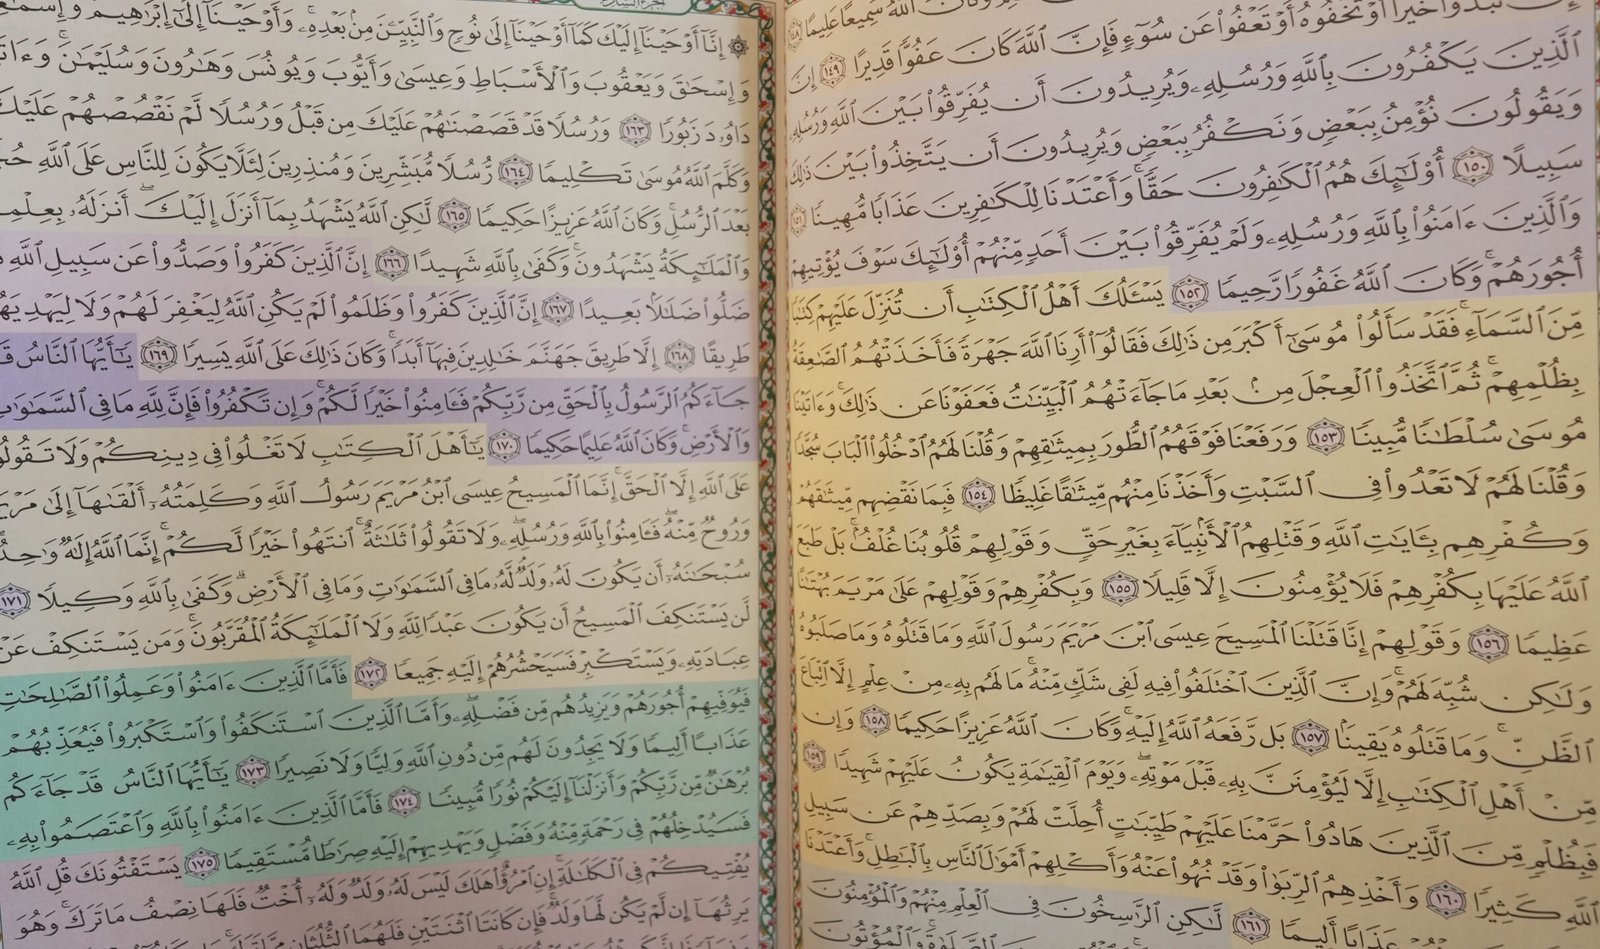 إِن تُبْدُوا۟ خَيْرًا أَوْ تُخْفُوهُ أَوْ تَعْفُوا۟ عَن سُوٓءٍ فَإِنَّ ٱللَّهَ كَانَ عَفُوًّا قَدِيرًا ١٤٩ إِنَّ
ٱلَّذِينَ يَكْفُرُونَ بِٱللَّهِ وَرُسُلِهِۦ وَيُرِيدُونَ أَن يُفَرِّقُوا۟ بَيْنَ ٱللَّهِ وَرُسُلِهِۦ
وَيَقُولُونَ نُؤْمِنُ بِبَعْضٍ وَنَكْفُرُ بِبَعْضٍ وَيُرِيدُونَ أَن يَتَّخِذُوا۟ بَيْنَ ذَٰلِكَ
سَبِيلًا ١٥٠ أُو۟لَٰٓئِكَ هُمُ ٱلْكَٰفِرُونَ حَقًّا ۚ وَأَعْتَدْنَا لِلْكَٰفِرِينَ عَذَابًا مُّهِينًا ١٥١
وَٱلَّذِينَ ءَامَنُوا۟ بِٱللَّهِ وَرُسُلِهِۦ وَلَمْ يُفَرِّقُوا۟ بَيْنَ أَحَدٍ مِّنْهُمْ أُو۟لَٰٓئِكَ سَوْفَ يُؤْتِيهِمْ
أُجُورَهُمْ ۗ وَكَانَ ٱللَّهُ غَفُورًا رَّحِيمًا ١٥٢ يَسْـَٔلُكَ أَهْلُ ٱلْكِتَٰبِ أَن تُنَزِّلَ عَلَيْهِمْ كِتَٰبًا
مِّنَ ٱلسَّمَآءِ ۚ فَقَدْ سَأَلُوا۟ مُوسَىٰٓ أَكْبَرَ مِن ذَٰلِكَ فَقَالُوٓا۟ أَرِنَا ٱللَّهَ جَهْرَةً فَأَخَذَتْهُمُ ٱلصَّٰعِقَةُ
بِظُلْمِهِمْ ۚ ثُمَّ ٱتَّخَذُوا۟ ٱلْعِجْلَ مِنۢ بَعْدِ مَا جَآءَتْهُمُ ٱلْبَيِّنَٰتُ فَعَفَوْنَا عَن ذَٰلِكَ ۚ وَءَاتَيْنَا
مُوسَىٰ سُلْطَٰنًا مُّبِينًا ١٥٣ وَرَفَعْنَا فَوْقَهُمُ ٱلطُّورَ بِمِيثَٰقِهِمْ وَقُلْنَا لَهُمُ ٱدْخُلُوا۟ ٱلْبَابَ سُجَّدًا
وَقُلْنَا لَهُمْ لَا تَعْدُوا۟ فِى ٱلسَّبْتِ وَأَخَذْنَا مِنْهُم مِّيثَٰقًا غَلِيظًا ١٥٤ فَبِمَا نَقْضِهِم مِّيثَٰقَهُمْ
وَكُفْرِهِم بِـَٔايَٰتِ ٱللَّهِ وَقَتْلِهِمُ ٱلْأَنۢبِيَآءَ بِغَيْرِ حَقٍّ وَقَوْلِهِمْ قُلُوبُنَا غُلْفٌۢ ۚ بَلْ طَبَعَ
ٱللَّهُ عَلَيْهَا بِكُفْرِهِمْ فَلَا يُؤْمِنُونَ إِلَّا قَلِيلًا ١٥٥ وَبِكُفْرِهِمْ وَقَوْلِهِمْ عَلَىٰ مَرْيَمَ بُهْتَٰنًا
عَظِيمًا ١٥٦ وَقَوْلِهِمْ إِنَّا قَتَلْنَا ٱلْمَسِيحَ عِيسَى ٱبْنَ مَرْيَمَ رَسُولَ ٱللَّهِ وَمَا قَتَلُوهُ وَمَا صَلَبُوهُ
وَلَٰكِن شُبِّهَ لَهُمْ ۚ وَإِنَّ ٱلَّذِينَ ٱخْتَلَفُوا۟ فِيهِ لَفِى شَكٍّ مِّنْهُ ۚ مَا لَهُم بِهِۦ مِنْ عِلْمٍ إِلَّا ٱتِّبَاعَ
ٱلظَّنِّ ۚ وَمَا قَتَلُوهُ يَقِينًۢا ١٥٧ بَل رَّفَعَهُ ٱللَّهُ إِلَيْهِ ۚ وَكَانَ ٱللَّهُ عَزِيزًا حَكِيمًا ١٥٨ وَإِن
مِّنْ أَهْلِ ٱلْكِتَٰبِ إِلَّا لَيُؤْمِنَنَّ بِهِۦ قَبْلَ مَوْتِهِۦ ۖ وَيَوْمَ ٱلْقِيَٰمَةِ يَكُونُ عَلَيْهِمْ شَهِيدًا ١٥٩
فَبِظُلْمٍ مِّنَ ٱلَّذِينَ هَادُوا۟ حَرَّمْنَا عَلَيْهِمْ طَيِّبَٰتٍ أُحِلَّتْ لَهُمْ وَبِصَدِّهِمْ عَن سَبِيلِ
ٱللَّهِ كَثِيرًا ١٦٠ وَأَخْذِهِمُ ٱلرِّبَوٰا۟ وَقَدْ نُهُوا۟ عَنْهُ وَأَكْلِهِمْ أَمْوَٰلَ ٱلنَّاسِ بِٱلْبَٰطِلِ ۚ وَأَعْتَدْنَا
عَذَابًا أَلِيمًا ١٦١ لَّٰكِنِ ٱلرَّٰسِخُونَ فِى ٱلْعِلْمِ مِنْهُمْ وَٱلْمُؤْمِنُونَ
إِنَّآ أَوْحَيْنَآ إِلَيْكَ كَمَآ أَوْحَيْنَآ إِلَىٰ نُوحٍ وَٱلنَّبِيِّـۧنَ مِنۢ بَعْدِهِۦ ۚ وَأَوْحَيْنَآ إِلَىٰٓ إِبْرَٰهِيمَ
وَإِسْحَٰقَ وَيَعْقُوبَ وَٱلْأَسْبَاطِ وَعِيسَىٰ وَأَيُّوبَ وَيُونُسَ وَهَٰرُونَ وَسُلَيْمَٰنَ ۚ
دَاوُۥدَ زَبُورًا ١٦٣ وَرُسُلًا قَدْ قَصَصْنَٰهُمْ عَلَيْكَ مِن قَبْلُ وَرُسُلًا لَّمْ نَقْصُصْهُمْ عَلَيْكَ
وَكَلَّمَ ٱللَّهُ مُوسَىٰ تَكْلِيمًا ١٦٤ رُّسُلًا مُّبَشِّرِينَ وَمُنذِرِينَ لِئَلَّا يَكُونَ لِلنَّاسِ عَلَى ٱللَّهِ
بَعْدَ ٱلرُّسُلِ ۚ وَكَانَ ٱللَّهُ عَزِيزًا حَكِيمًا ١٦٥ لَّٰكِنِ ٱللَّهُ يَشْهَدُ بِمَآ أَنزَلَ إِلَيْكَ ۖ أَنزَلَهُۥ
وَٱلْمَلَٰٓئِكَةُ يَشْهَدُونَ ۚ وَكَفَىٰ بِٱللَّهِ شَهِيدًا ١٦٦ إِنَّ ٱلَّذِينَ كَفَرُوا۟ وَصَدُّوا۟ عَن سَبِيلِ ٱللَّهِ
ضَلُّوا۟ ضَلَٰلًۢا بَعِيدًا ١٦٧ إِنَّ ٱلَّذِينَ كَفَرُوا۟ وَظَلَمُوا۟ لَمْ يَكُنِ ٱللَّهُ لِيَغْفِرَ لَهُمْ وَلَا
طَرِيقًا ١٦٨ إِلَّا طَرِيقَ جَهَنَّمَ خَٰلِدِينَ فِيهَآ أَبَدًا ۚ وَكَانَ ذَٰلِكَ عَلَى ٱللَّهِ يَسِيرًا ١٦٩ يَٰٓأَيُّهَا ٱلنَّاسُ
جَآءَكُمُ ٱلرَّسُولُ بِٱلْحَقِّ مِن رَّبِّكُمْ فَـَٔامِنُوا۟ خَيْرًا لَّكُمْ ۚ وَإِن تَكْفُرُوا۟ فَإِنَّ لِلَّهِ مَا فِى ٱلسَّمَٰوَٰتِ
وَٱلْأَرْضِ ۚ وَكَانَ ٱللَّهُ عَلِيمًا حَكِيمًا ١٧٠ يَٰٓأَهْلَ ٱلْكِتَٰبِ لَا تَغْلُوا۟ فِى دِينِكُمْ وَلَا تَقُولُوا۟
عَلَى ٱللَّهِ إِلَّا ٱلْحَقَّ ۚ إِنَّمَا ٱلْمَسِيحُ عِيسَى ٱبْنُ مَرْيَمَ رَسُولُ ٱللَّهِ وَكَلِمَتُهُۥٓ أَلْقَىٰهَآ إِلَىٰ مَرْيَمَ
وَرُوحٌ مِّنْهُ ۖ فَـَٔامِنُوا۟ بِٱللَّهِ وَرُسُلِهِۦ ۖ وَلَا تَقُولُوا۟ ثَلَٰثَةٌ ۚ ٱنتَهُوا۟ خَيْرًا لَّكُمْ ۚ إِنَّمَا ٱللَّهُ إِلَٰهٌ وَٰحِدٌ
سُبْحَٰنَهُۥٓ أَن يَكُونَ لَهُۥ وَلَدٌ ۘ لَّهُۥ مَا فِى ٱلسَّمَٰوَٰتِ وَمَا فِى ٱلْأَرْضِ ۗ وَكَفَىٰ بِٱللَّهِ وَكِيلًا ١٧١
لَّن يَسْتَنكِفَ ٱلْمَسِيحُ أَن يَكُونَ عَبْدًا لِّلَّهِ وَلَا ٱلْمَلَٰٓئِكَةُ ٱلْمُقَرَّبُونَ ۚ وَمَن يَسْتَنكِفْ عَنْ
عِبَادَتِهِۦ وَيَسْتَكْبِرْ فَسَيَحْشُرُهُمْ إِلَيْهِ جَمِيعًا ١٧٢ فَأَمَّا ٱلَّذِينَ ءَامَنُوا۟ وَعَمِلُوا۟ ٱلصَّٰلِحَٰتِ
فَيُوَفِّيهِمْ أُجُورَهُمْ وَيَزِيدُهُم مِّن فَضْلِهِۦ ۖ وَأَمَّا ٱلَّذِينَ ٱسْتَنكَفُوا۟ وَٱسْتَكْبَرُوا۟ فَيُعَذِّبُهُمْ
عَذَابًا أَلِيمًا وَلَا يَجِدُونَ لَهُم مِّن دُونِ ٱللَّهِ وَلِيًّا وَلَا نَصِيرًا ١٧٣ يَٰٓأَيُّهَا ٱلنَّاسُ قَدْ جَآءَكُم
بُرْهَٰنٌ مِّن رَّبِّكُمْ وَأَنزَلْنَآ إِلَيْكُمْ نُورًا مُّبِينًا ١٧٤ فَأَمَّا ٱلَّذِينَ ءَامَنُوا۟ بِٱللَّهِ وَٱعْتَصَمُوا۟ بِهِۦ
فَسَيُدْخِلُهُمْ فِى رَحْمَةٍ مِّنْهُ وَفَضْلٍ وَيَهْدِيهِمْ إِلَيْهِ صِرَٰطًا مُّسْتَقِيمًا ١٧٥ يَسْتَفْتُونَكَ قُلِ ٱللَّهُ
يُفْتِيكُمْ فِى ٱلْكَلَٰلَةِ ۚ إِنِ ٱمْرُؤٌا۟ هَلَكَ لَيْسَ لَهُۥ وَلَدٌ وَلَهُۥٓ أُخْتٌ فَلَهَا نِصْفُ مَا تَرَكَ ۚ وَهُوَ
يَرِثُهَآ إِن لَّمْ يَكُن لَّهَا وَلَدٌ ۚ فَإِن كَانَتَا ٱثْنَتَيْنِ فَلَهُمَا ٱلثُّلُثَانِ مِمَّا تَرَكَ ۚ